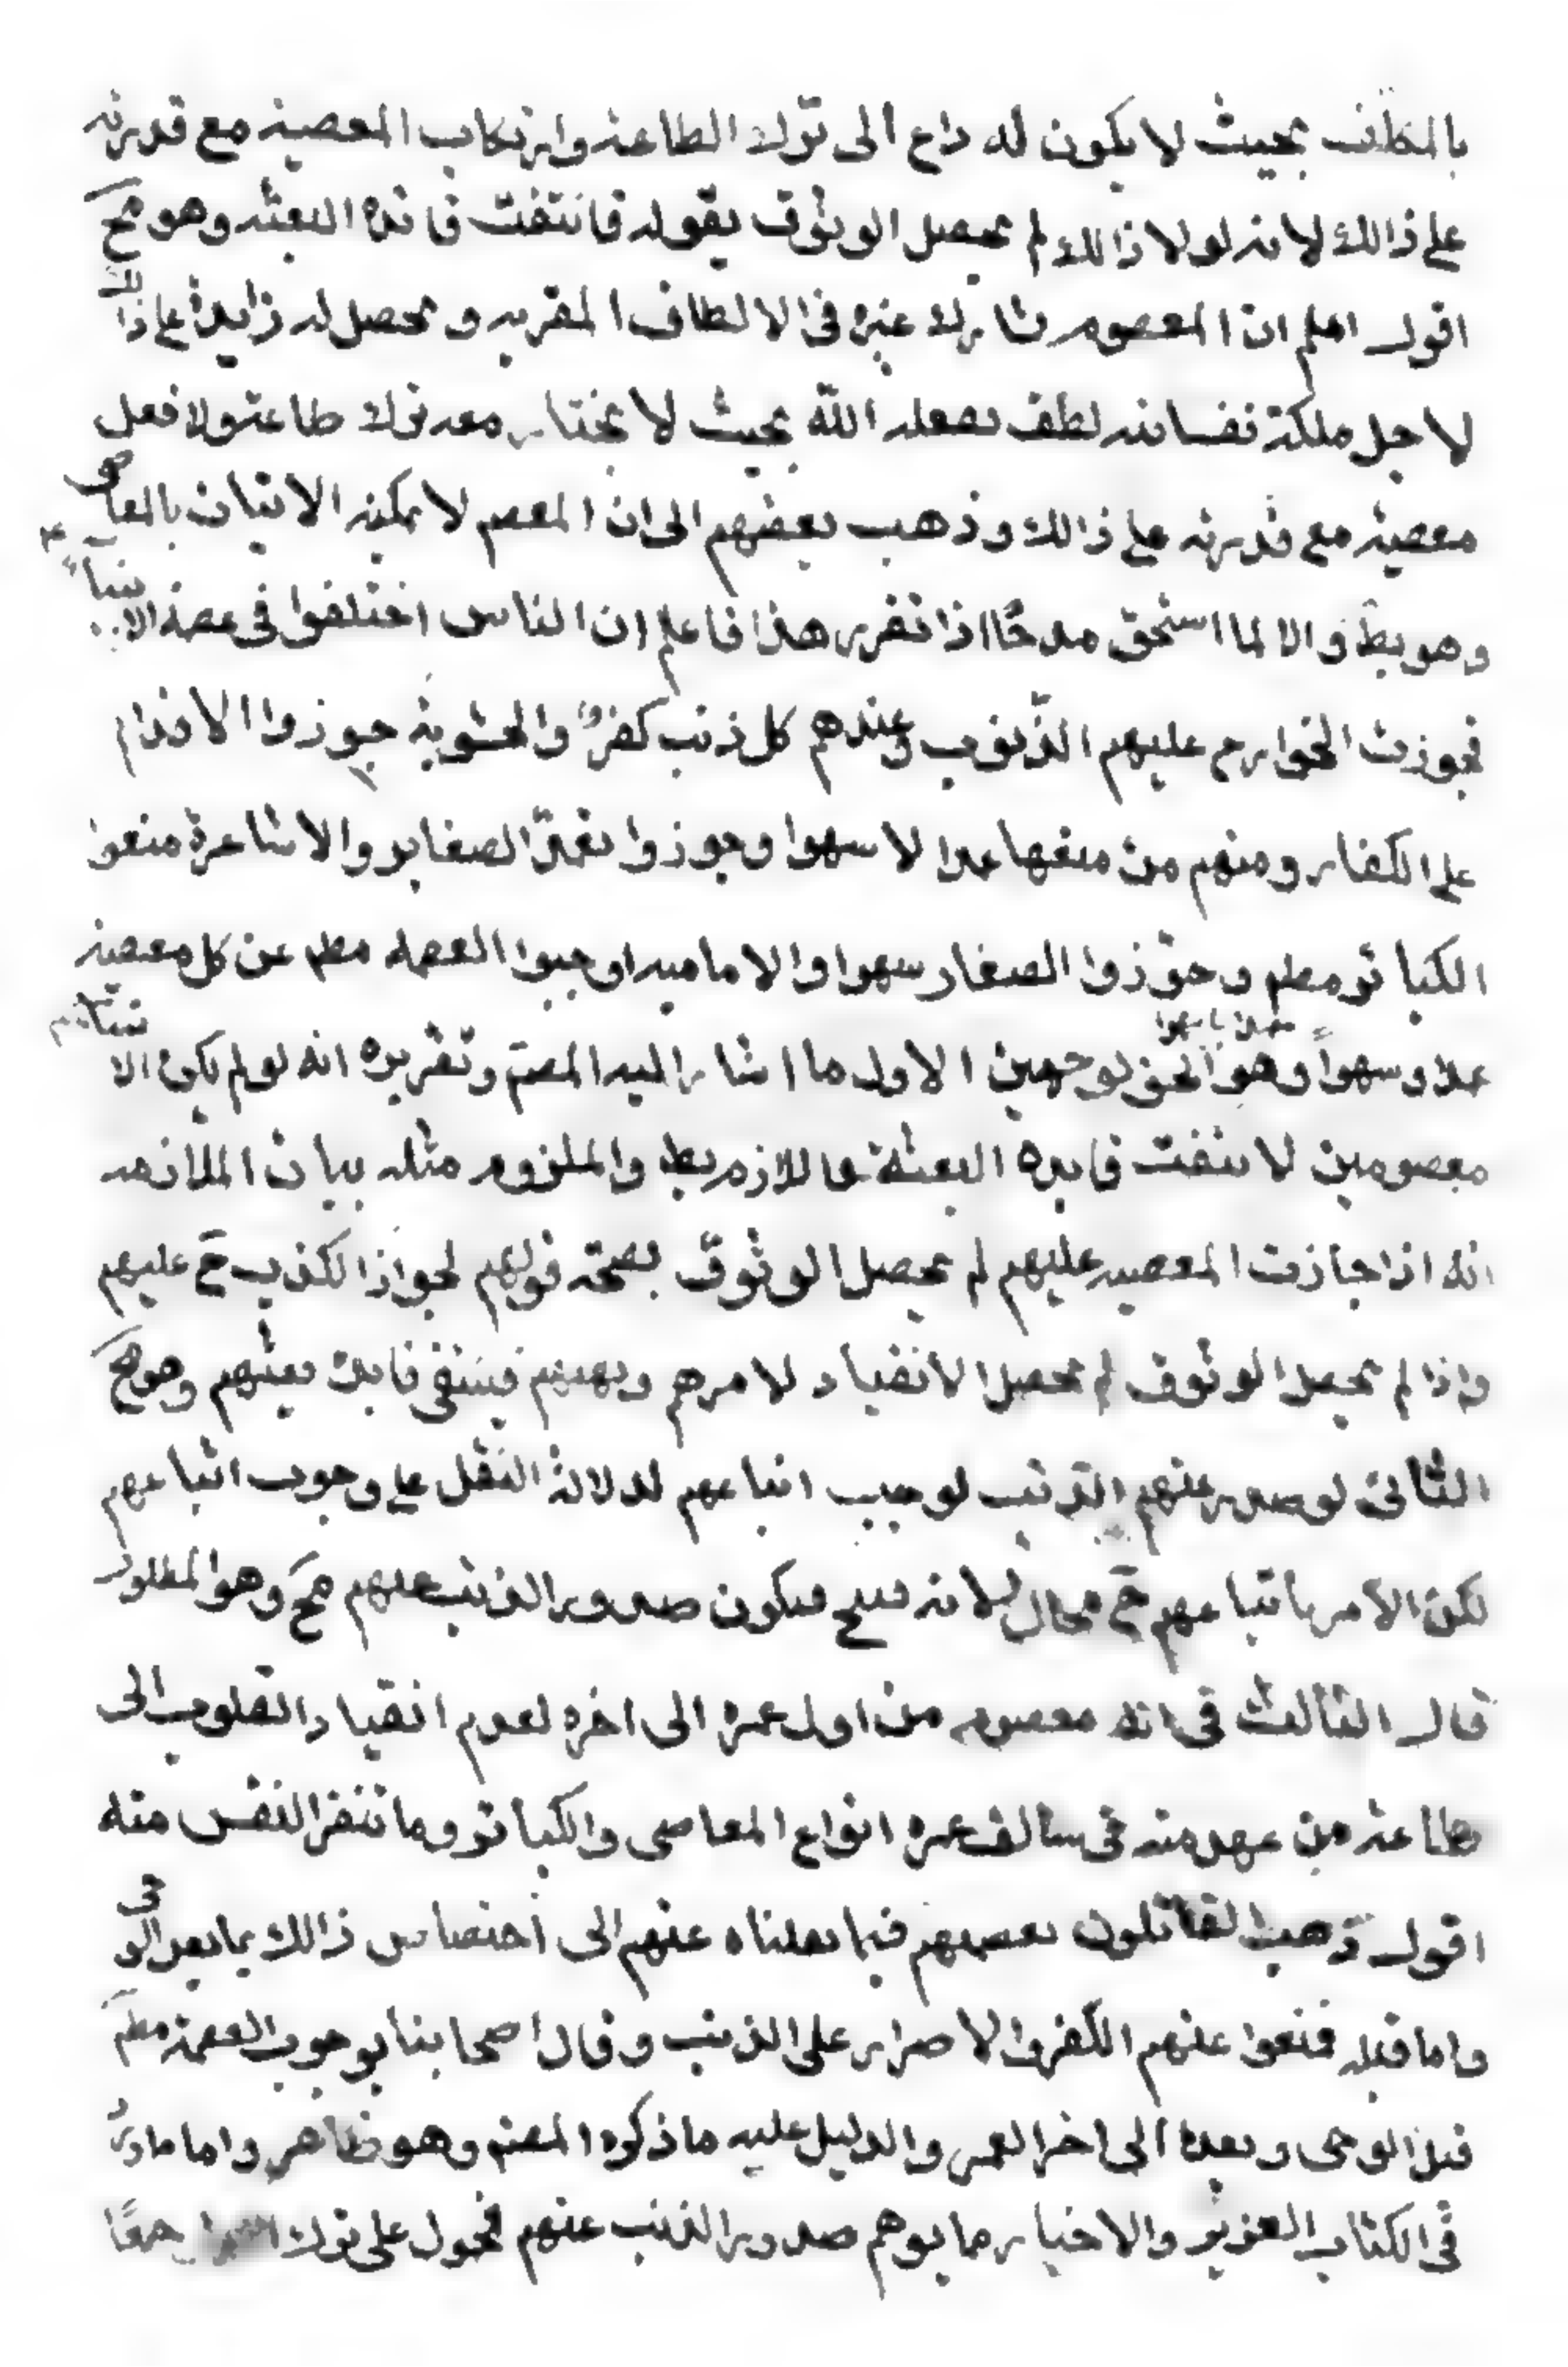 بالمكلف بحيث لا يكون له داع الى ترك الطاعة وارتكاب المعصية مع قدرته
على ذالك لانه لولا ذالك لم يحصل الوثوق بقوله فانتفت فائدة البعثه وهو مح
اقول اعلم ان المعصوم شارك غيره فى الالطاف المقربه و يحصل له زايدة على ذالك
لاجل ملكة نفسانيه لطف يفعله الله بحيث لا يختار معه ترك طاعة ولا فعل
معصيه مع قدرته على ذالك وذهب بعضهم الى ان المعصم لا يمكنه الاتيان بالمعاصى
وهو بط والا لما استحق مدحًا اذا تقرر هذا فاعلم ان الناس اختلفوا فى عصمة الانبياء ع
فجوزت الخوارج عليهم الذنوب وعندهم كل ذنب كفر والحشوية جوزوا الاقدام
على الكفار ومنهم من منعها عمدا لا سهوا وجوزوا تعمد الصغاير والاشاعرة منعوا
الكبائر مطم وجوّزوا الصغار سهوا والاماميه اوجبوا العصمه مطم عن كل معصية
عمدا وسهواً وهو الحق لوجهين الاول ما اشار اليه المصم وتقريره انه لو لم يكن الا نبياء
معصومين لانتفت فايده البعثة واللازم بط والملزوم مثله بيان الملازمه
انه اذا جازت المعصيه عليهم لم يحصل الوثوق بصحة قولهم لجواز الكذب ح عليهم
واذا لم يحصل الوثوق لم يحصل الانقياد لامرهم ونهيهم فينتفى فايدة بعثهم وهو مح
الثانى لو صدر عنهم الذنب لوجب اتباعهم لدلالة النقل على وجوب اتباعهم
لكن الامر باتباعهم ح محال لانه قبيح فيكون صدور الذنب عنهم مح وهو المطلوب
قال الثالث فى انه معصوم من اول عمره الى اخره لعدم انقياد القلوب الى
طاعة من عهد منه فى سالف عمره انواع المعاصى والكبائر وما تنفر النفس منه
اقول ذهب القائلون بعصمتهم فيما نقلناه عنهم الى اختصاص ذالك بما بعد الوحى
واما قبله فمنعوا عنهم الكفر والاصرار على الذنب وقال اصحابنا بوجوب العصمة مطم
قبل الوحى وبعده الى اخر العمر والدليل عليه ما ذكره المصنم وهو ظاهر واما ما ورد
فى الكتاب العزيز والاخبار مما يوهم صدور الذنب عنهم فمحول على ترك جمعًا